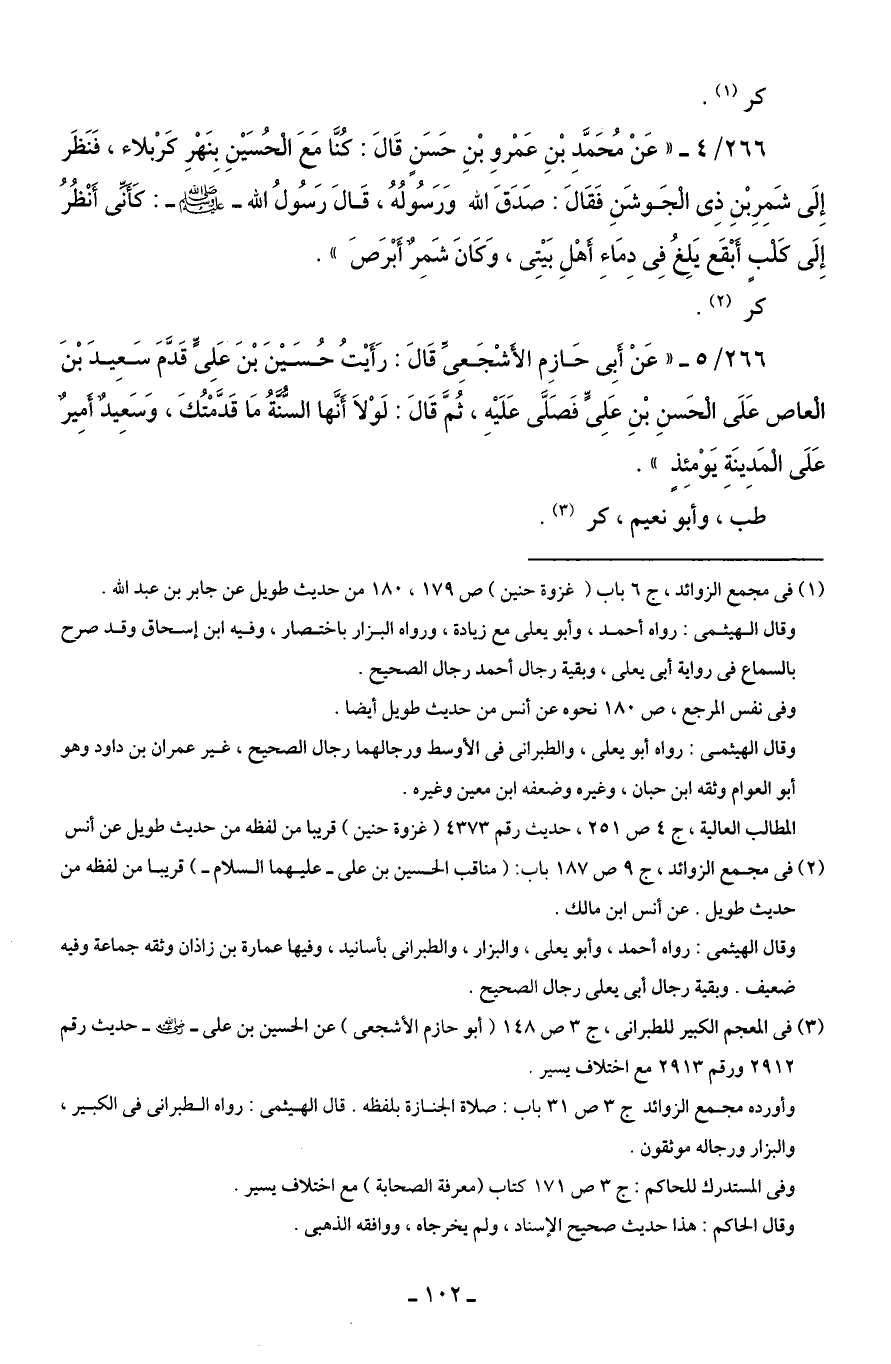 كر (١) .
٢٦٦/ ٤ ـ « عَنْ مُحَمَّدِ بْنِ عَمْرِو بْنِ حَسَنٍ قَالَ : كُنَّا مَعَ الْحُسَيْنِ بِنَهْرِ كَرْبلاء ، فَنَظَر
إِلَى شَمِرِبْنِ ذِى الْجَـوشَنِ فَقَالَ : صَدَقَ الله وَرَسُولُهُ ، قَـالَ رَسُولُ الله ـ ﷺ ـ : كَأَنِّى أَنْظُرُ
إِلَى كَلْبٍ أَبْقَع يَلِغُ فِى دِمَاءِ أَهْلِ بَيْتِى ، وَكَانَ شَمرٌ أَبْرَصَ » .
كر (٢) .
٢٦٦/ ٥ ـ « عَنْ أَبِى حَـازِمِ الأَشْجَـعىِّ قَالَ : رَأَيْتُ حُـسَيْنَ بْنَ عَلىٍّ قَدَّمَ سَـعِيـدَ بْنَ
الْعاص عَلَى الْحَسنِ بْنِ عَلىٍّ فَصَلَّى عَلَيْهِ ، ثُمَّ قَالَ : لَوْلاَ أَنَّها السُّنَّةُ مَا قَدَّمْتُكَ ، وَسَعِيدٌ أَمِيرٌ
عَلَى الْمَدِينَةِ يَوْمئِذٍ » .
طب ، وأبو نعيم ، كر (٣) .
(١) فى مجمع الزوائد ، ج ٦ باب ( غزوة حنين ) ص ١٧٩ ، ١٨٠ من حديث طويل عن جابر بن عبد الله .
وقال الـهيثـمى : رواه أحمـد ، وأبو يعلى مع زيادة ، ورواه البـزار باخـتصـار ، وفـيه ابن إسـحاق وقـد صرح
بالسماع فى رواية أبى يعلى ، وبقية رجال أحمد رجال الصحيح .
وفى نفس المرجع ، ص ١٨٠ نحوه عن أنس من حديث طويل أيضا .
وقال الهيثمـى : رواه أبو يعلى ، والطبرانى فى الأوسط ورجالهما رجال الصحيح ، غـير عمران بن داود وهو
أبو العوام وثقه ابن حبان ، وغيره وضعفه ابن معين وغيره .
المطالب العالية ، ج ٤ ص ٢٥١ ، حديث رقم ٤٣٧٣ ( غزوة حنين ) قريبا من لفظه من حديث طويل عن أنس
(٢) فى مجـمع الزوائد ، ج ٩ ص ١٨٧ باب: ( مناقب الحـسين بن على ـ عليـهما الـسلام ـ) قريبـا من لفظه من
حديث طويل . عن أنس ابن مالك .
وقال الهيثمى : رواه أحمد ، وأبو يعلى ، والبزار ، والطبرانى بأسانيد ، وفيها عمارة بن زاذان وثقه جماعة وفيه
ضعيف . وبقية رجال أبى يعلى رجال الصحيح .
(٣) فى المعجم الكبير للطبرانى ، ج ٣ ص ١٤٨ ( أبو حازم الأشجعى ) عن الحسين بن على ـ رضي الله عنه ـ حديث رقم
٢٩١٢ ورقم ٢٩١٣ مع اختلاف يسير .
وأورده مجـمع الزوائد ج ٣ ص ٣١ باب : صلاة الجنـازة بلفظه . قال الهـيثمى : رواه الـطبرانى فى الكبـير ،
والبزار ورجاله موثقون .
وفى المستدرك للحاكم : ج ٣ ص ١٧١ كتاب (معرفة الصحابة ) مع اختلاف يسير .
وقال الحاكم : هذا حديث صحيح الإسناد ، ولم يخرجاه ، ووافقه الذهبى .
ـ ١٠٢ ـ